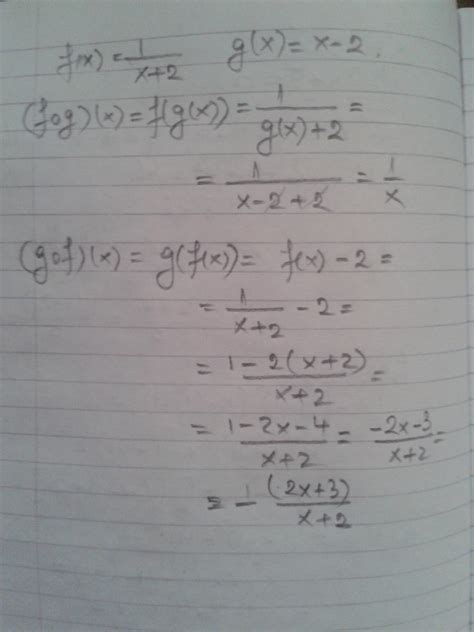 f(x) = 1/(x+2) g(x) = x-2.
(fog)(x) = f(g(x)) = 1/(g(x)+2) =
= 1/(x-2+2) = 1/x
(gof)(x) = g(f(x)) = f(x) - 2 =
= 1/(x+2) - 2 =
= (1-2(x+2))/(x+2) =
= (1-2x-4)/(x+2) = (-2x-3)/(x+2) =
= - (2x+3)/(x+2)